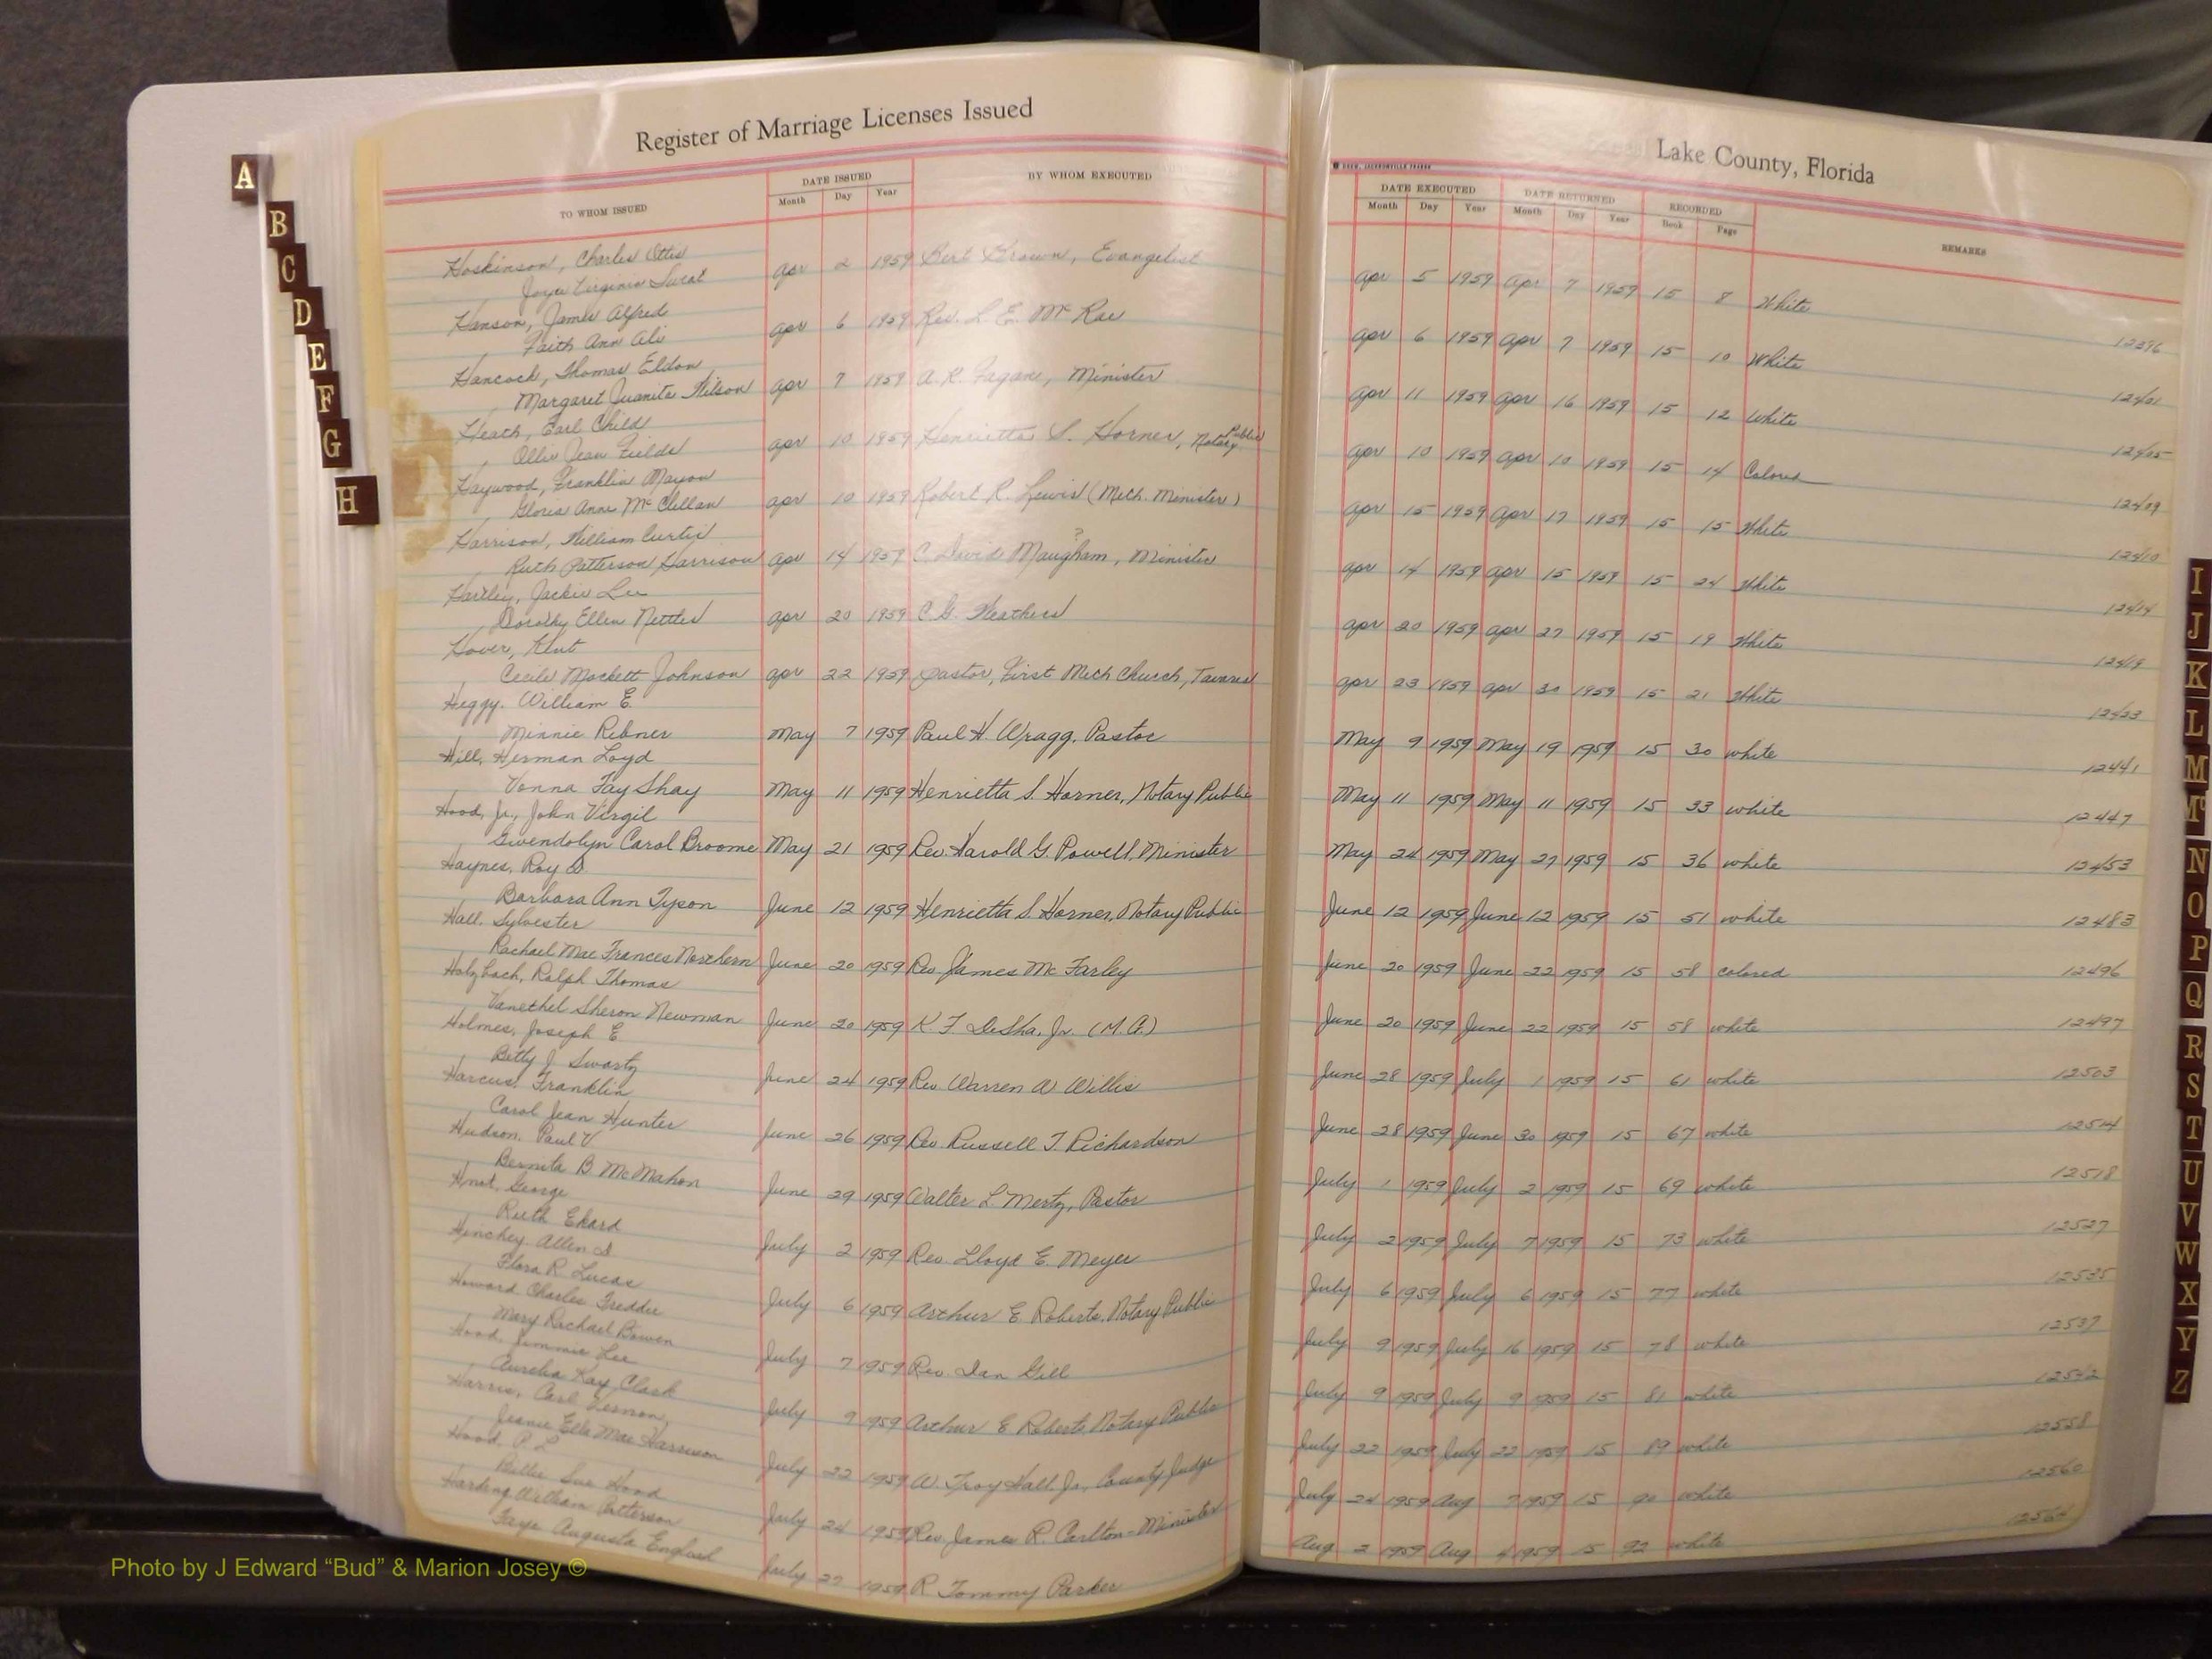 Register of Marriage Licenses Issued
Lake County, Florida
TO WHOM ISSUED
DATE ISSUED
Month Day Year
BY WHOM EXECUTED
DATE EXECUTED
Month Day Year
DATE RETURNED
Month Day Year
RECORDED
Book Page
REMARKS
Hoskinson, Charles Ottis
Joyce Virginia Swat apr 2 1959 Bert Brown, Evangelist apr 5 1959 apr 7 1959 15 8 White 12396
Hanson, James Alfred
Faith Ann Ali apr 6 1959 Rev. L. E. McRae apr 6 1959 apr 7 1959 15 10 White 12401
Hancock, Thomas Eldon
Margaret Juanita Wilson apr 7 1959 A. R. Fagan, Minister apr 11 1959 apr 16 1959 15 12 White 12405
Heath, Earl Child
Ollie Jean Fields apr 10 1959 Henrietta S. Horner, Notary Public apr 10 1959 apr 10 1959 15 14 Colored 12409
Haywood, Franklin Mayou
Gloria Anne McClellan apr 10 1959 Robert R. Lewis (Meth. Minister) apr 15 1959 apr 17 1959 15 15 White 12410
Harrison, William Curtis
Ruth Patterson Harrison apr 14 1959 C. David Maugham, Minister ? apr 14 1959 apr 15 1959 15 24 White 12414
Hartley, Jackie Lee
Dorothy Ellen Nettles apr 20 1959 C. G. Weathers apr 20 1959 apr 27 1959 15 19 White 12419
Hover, Knut
Cecile Mockett Johnson apr 22 1959 Pastor, First Meth Church, Tavares apr 23 1959 apr 30 1959 15 21 White 12423
Heggy, William E.
Minnie Ribner May 7 1959 Paul H. Wragg, Pastor May 9 1959 May 19 1959 15 30 white 12441
Hill, Herman Loyd
Vonna Fay Shay May 11 1959 Henrietta S. Horner, Notary Public May 11 1959 May 11 1959 15 33 white 12447
Hood, Jr., John Virgil
Gwendolyn Carol Broome May 21 1959 Rev. Harold G. Powell, Minister May 24 1959 May 27 1959 15 36 white 12453
Haynes, Roy D.
Barbara Ann Tyson June 12 1959 Henrietta S. Horner, Notary Public June 12 1959 June 12 1959 15 51 white 12483
Hall, Sylvester
Rachael Mae Frances Northern June 20 1959 Rev James McFarley June 20 1959 June 22 1959 15 58 colored 12496
Holzbach, Ralph Thomas
Vanethel Sheron Newman June 20 1959 K. F. DeSha, Jr. (M.G.) June 20 1959 June 22 1959 15 58 white 12497
Holmes, Joseph E.
Betty J. Swartz June 24 1959 Rev. Warren W Willis June 28 1959 July 1 1959 15 61 white 12503
Harcus, Franklin
Carol Jean Hunter June 26 1959 Rev. Russell T. Richardson June 28 1959 June 30 1959 15 67 white 12514
Hudson, Paul V
Bernita B McMahon June 29 1959 Walter L Mertz, Pastor July 1 1959 July 2 1959 15 69 white 12518
Hnat, George
Ruth Ekard July 2 1959 Rev. Lloyd E. Meyer July 2 1959 July 7 1959 15 73 white 12527
Hinchey Allen D
Flora R Lucas July 6 1959 Arthur E. Roberts, Notary Public July 6 1959 July 6 1959 15 77 white 12535
Howard Charles Freddie
Mary Rachael Bowen July 7 1959 Rev. Dan Gill July 9 1959 July 16 1959 15 78 white 12537
Hood, Jimmie Lee
Aurelia Kay Clark July 9 1959 Arthur E Roberts Notary Public July 9 1959 July 9 1959 15 81 white 12542
Harris, Carl Vernon
Jeanie Ella Mae Harrison July 22 1959 W. Troy Hall, Jr., County Judge July 22 1959 July 22 1959 15 89 white 12558
Hood, P. L
Billie Sue Hood July 24 1959 Rev. James R. Carlton-Minister July 24 1959 Aug 7 1959 15 90 white 12560
Harting William Patterson
Faye Augusta English July 27 1959 R Tommy Parker Aug 2 1959 Aug 4 1959 15 92 white 12564
A
B
C
D
E
F
G
H
I
J
K
L
M
Mc
N
O
P
Q
R
S
T
U
V
W
X
Y
Z
Photo by J Edward “Bud” & Marion Josey ©